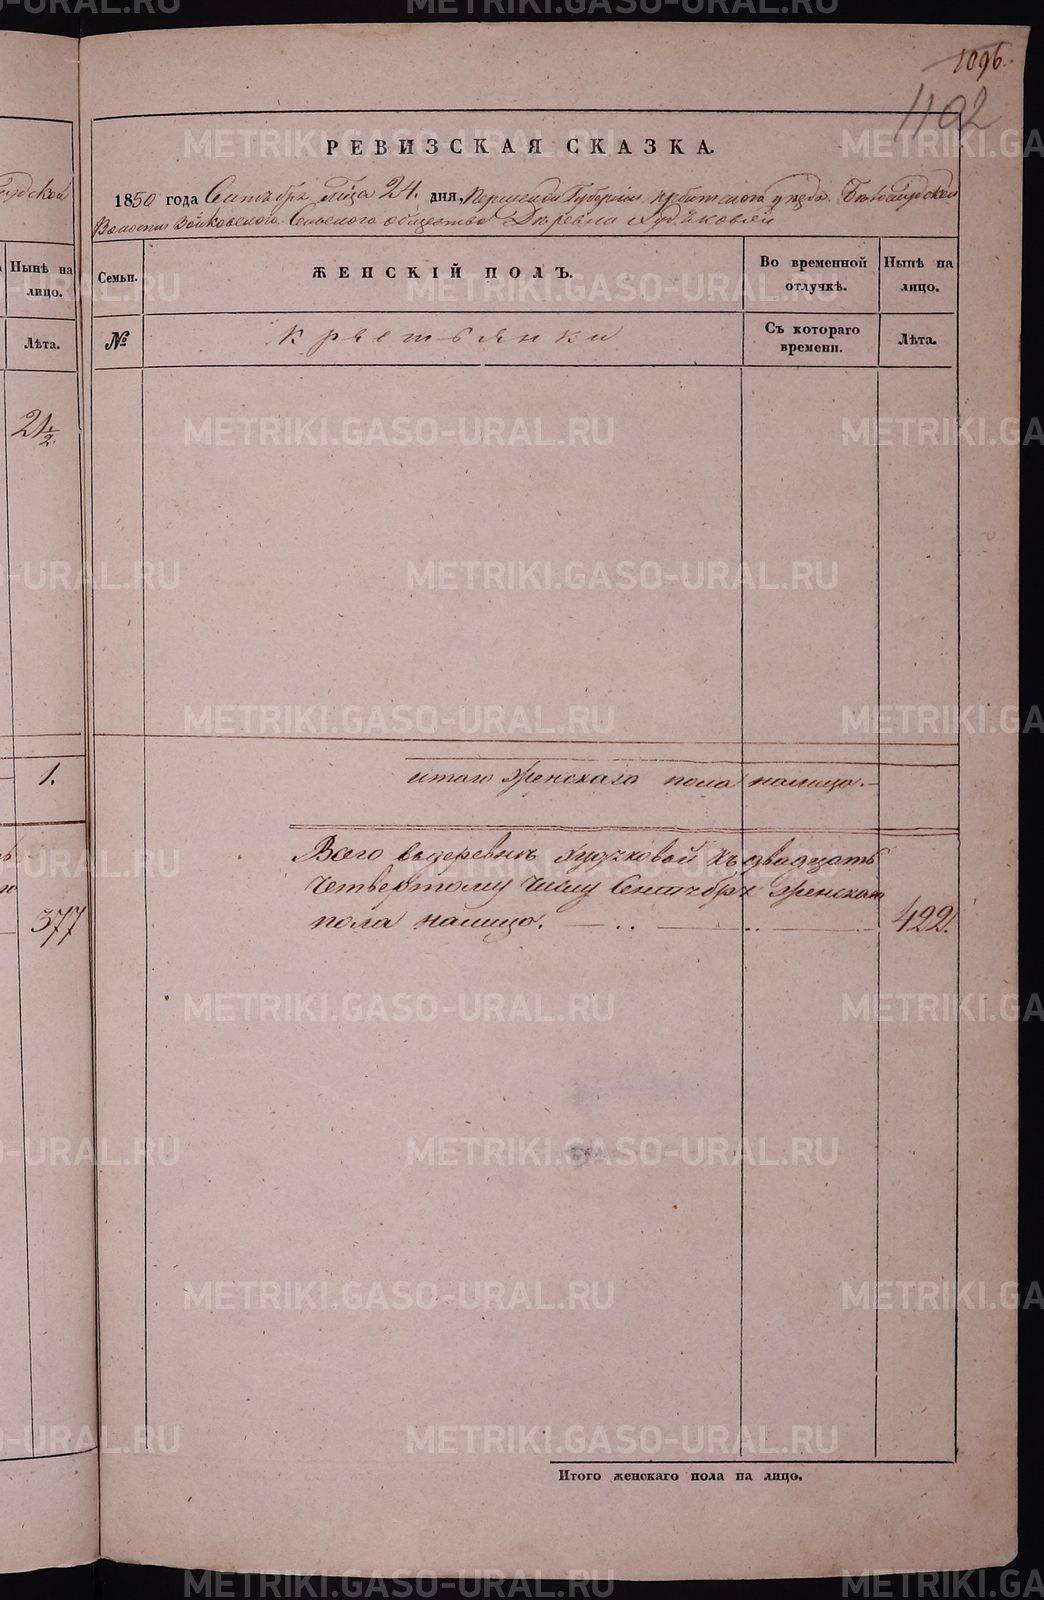 1096.
1102
РЕВИЗСКАЯ СКАЗКА.
1850 года Сентября м̃ца 24. дня, Пермской Губерніи Ирбитского уѣзда Бѣлослудской
Волости Зайковского Сельского общества Деревни Худяковой
Семьи. ЖЕНСКІЙ ПОЛЪ. Во временной отлучкѣ. Нынѣ на лицо.
№ крестьянки Съ котораго времени. Лѣта.
итого женскаго пола налицо.—
Всего въ деревнѣ Худяковой къ двадцать
четвертому числу Сентября женскаго
пола налицо. 422.
Итого женскаго пола на лицо.
Нынѣ на лицо.
Лѣта.
21/2.
1.
377
METRIKI.GASO-URAL.RU